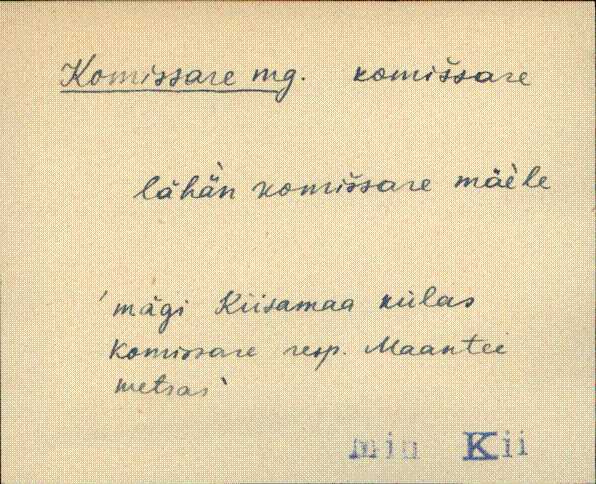 Komissare mg. komišsare
lähän komišsare mäele
'mägi Kiisamaa külas
Komissare resp. Maantee
metsas'
Kii